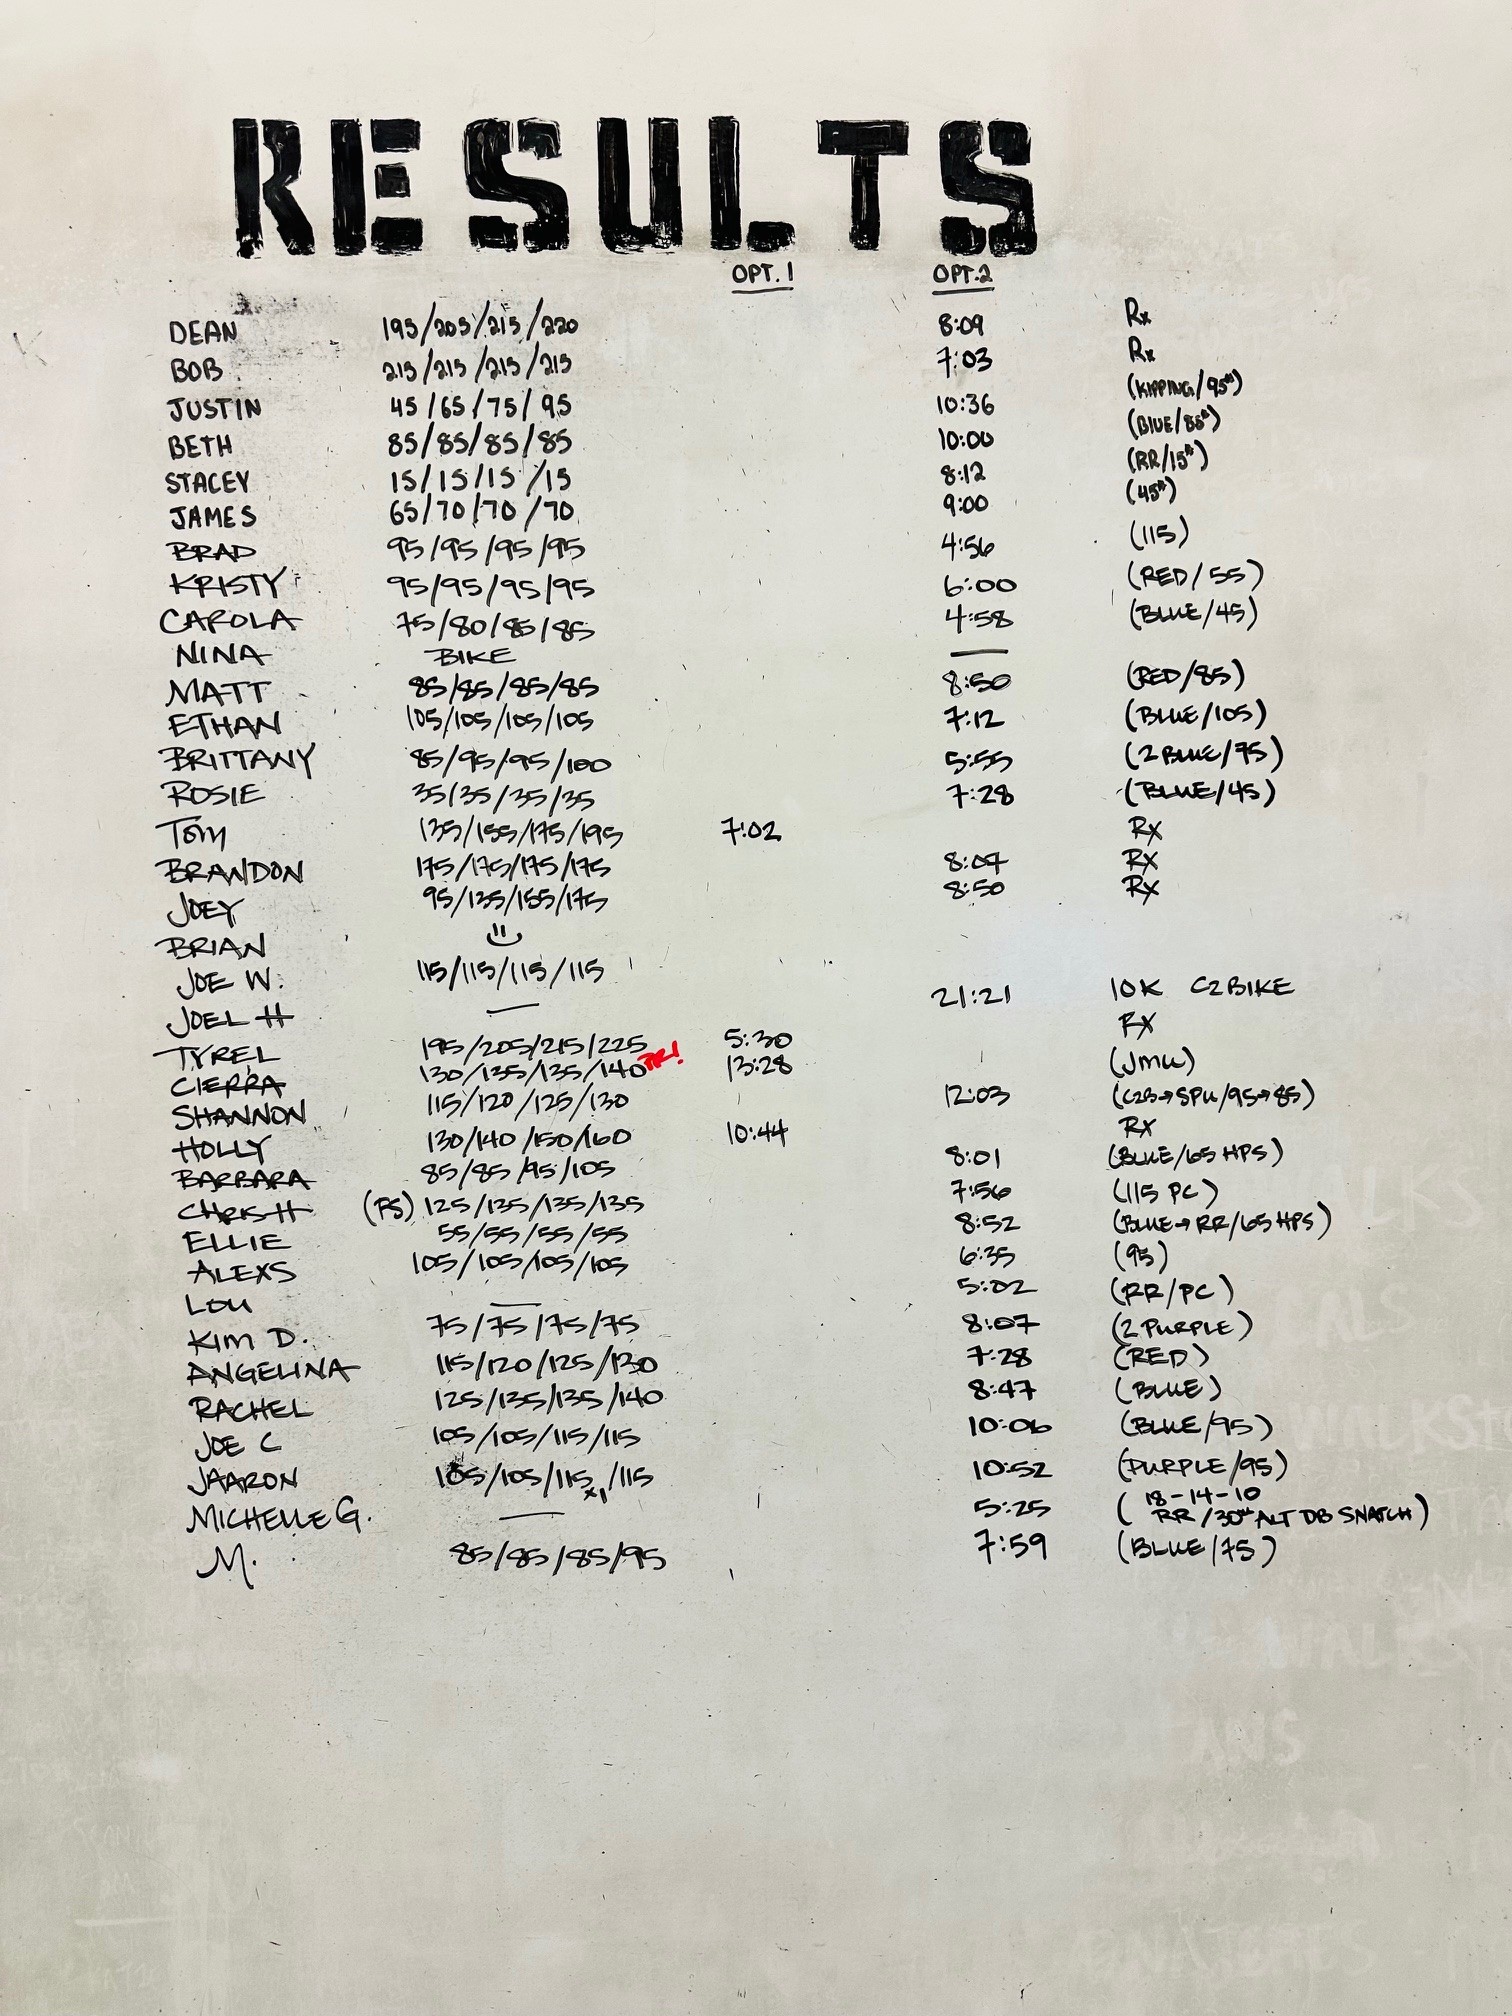 RESULTS
OPT. 1 OPT.2
DEAN 195/205/215/220 8:09 Rx
BOB 215/215/215/215 7:03 Rx
JUSTIN 45/65/75/95 10:36 (KIPPING/95#)
BETH 85/85/85/85 10:00 (BLUE/85#)
STACEY 15/15/15/15 8:12 (RR/15#)
JAMES 65/70/70/70 9:00 (45#)
BRAD 95/95/95/95 4:56 (115)
KRISTY 95/95/95/95 6:00 (RED/55)
CAROLA 75/80/85/85 4:58 (BLUE/45)
NINA BIKE —
MATT 85/85/85/85 8:50 (RED/85)
ETHAN 105/105/105/105 7:12 (BLUE/105)
BRITTANY 85/95/95/100 5:55 (2 BLUE/75)
ROSIE 35/35/35/35 7:28 (BLUE/45)
TOM 135/155/175/195 7:02 RX
BRANDON 175/175/175/175 8:07 RX
JOEY 95/135/155/175 8:50 RX
BRIAN
JOE W. 115/115/115/115
JOEL H — 21:21 10K C2BIKE
TYREL 195/205/215/225 5:30 RX
CIERRA 130/135/135/140 PR! 13:28 (JMU)
SHANNON 115/120/125/130 12:03 (C2B→SPU/95→85)
HOLLY 130/140/150/160 10:44 RX
BARBARA 85/85/95/105 8:01 (BLUE/65 HPS)
CHRIS H (PS) 125/135/135/135 7:56 (115 PC)
ELLIE 55/55/55/55 8:52 (BLUE→RR/65 HPS)
ALEXS 105/105/105/105 6:35 (95)
LOU — 5:02 (RR/PC)
KIM D. 75/75/75/75 8:07 (2 PURPLE)
ANGELINA 115/120/125/130 7:28 (RED)
RACHEL 125/135/135/140 8:47 (BLUE)
JOE C 105/105/115/115 10:06 (BLUE/95)
JAARON 105/105/115 x1/115 10:52 (PURPLE/95)
MICHELLE G. — 5:25 (18-14-10
RR/30# ALT DB SNATCH)
M. 85/85/85/95 7:59 (BLUE/75)